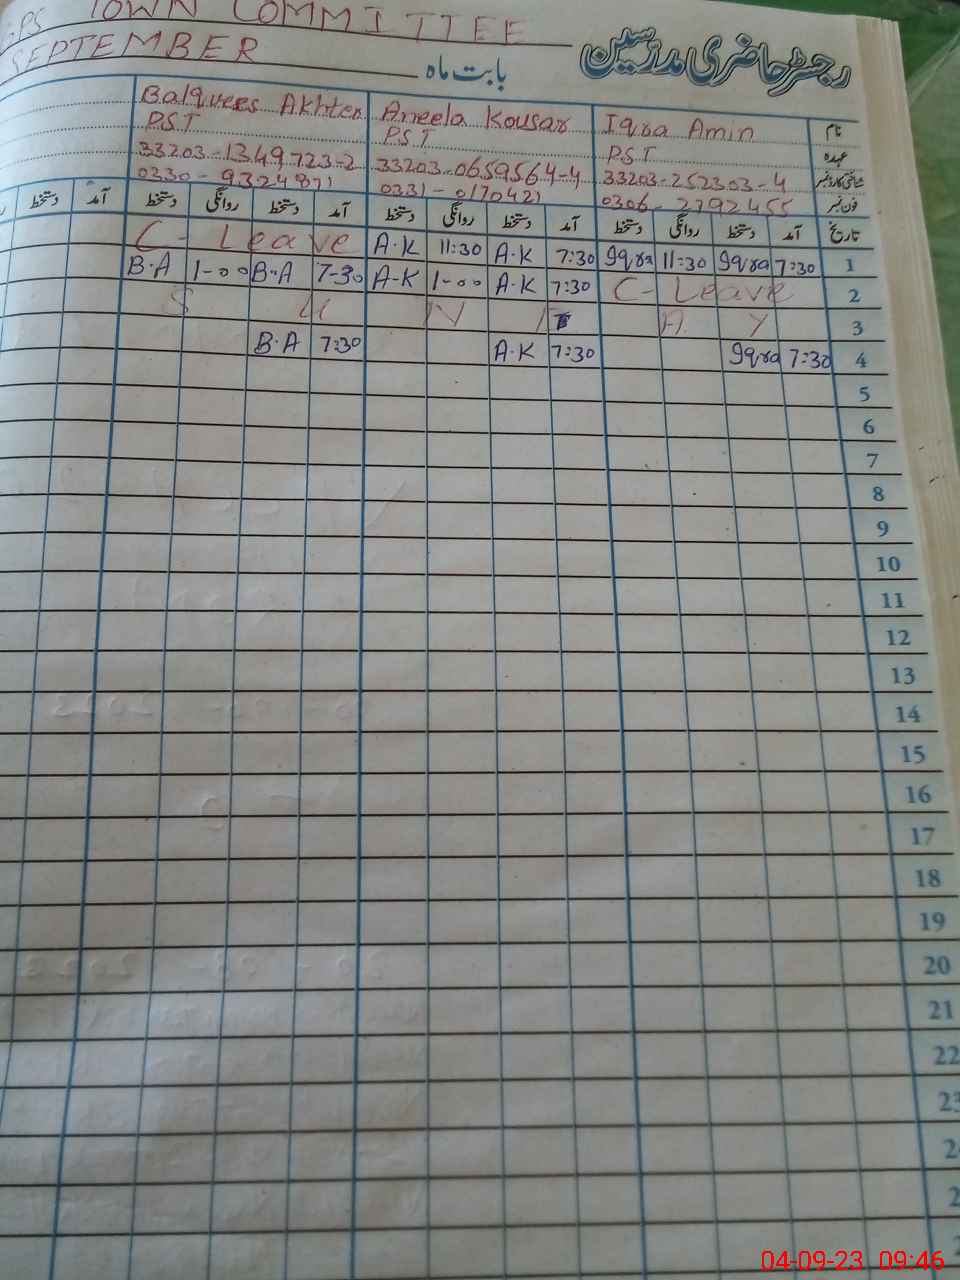 GPS TOWN COMMITTEE
رجسٹر حاضری مدرسین
SEPTEMBER بابت ماہ
نام Iqra Amin Aneela Kousar Balqvees Akhter
عہدہ P.S.T P.S.T P.S.T
شناختی کارڈ نمبر 33203-252303-4 33203-0659564-4 33203-1349723-2
فون نمبر 0306-2792455 0331-0170421 0330-9324871
تاریخ آمد دستخط روانگی دستخط آمد دستخط روانگی دستخط آمد دستخط روانگی دستخط آمد دستخط
1 7:30 Iqra 11:30 Iqra 7:30 A.K 11:30 A.K C-Leave
2 C-Leave 7:30 A.K 1-00 A-K 7-30 B.A 1-00 B.A
3 S U N D A Y
4 7:30 Iqra 7:30 A.K 7:30 B.A
5
6
7
8
9
10
11
12
13
14
15
16
17
18
19
20
21
22
04-09-23 09:46